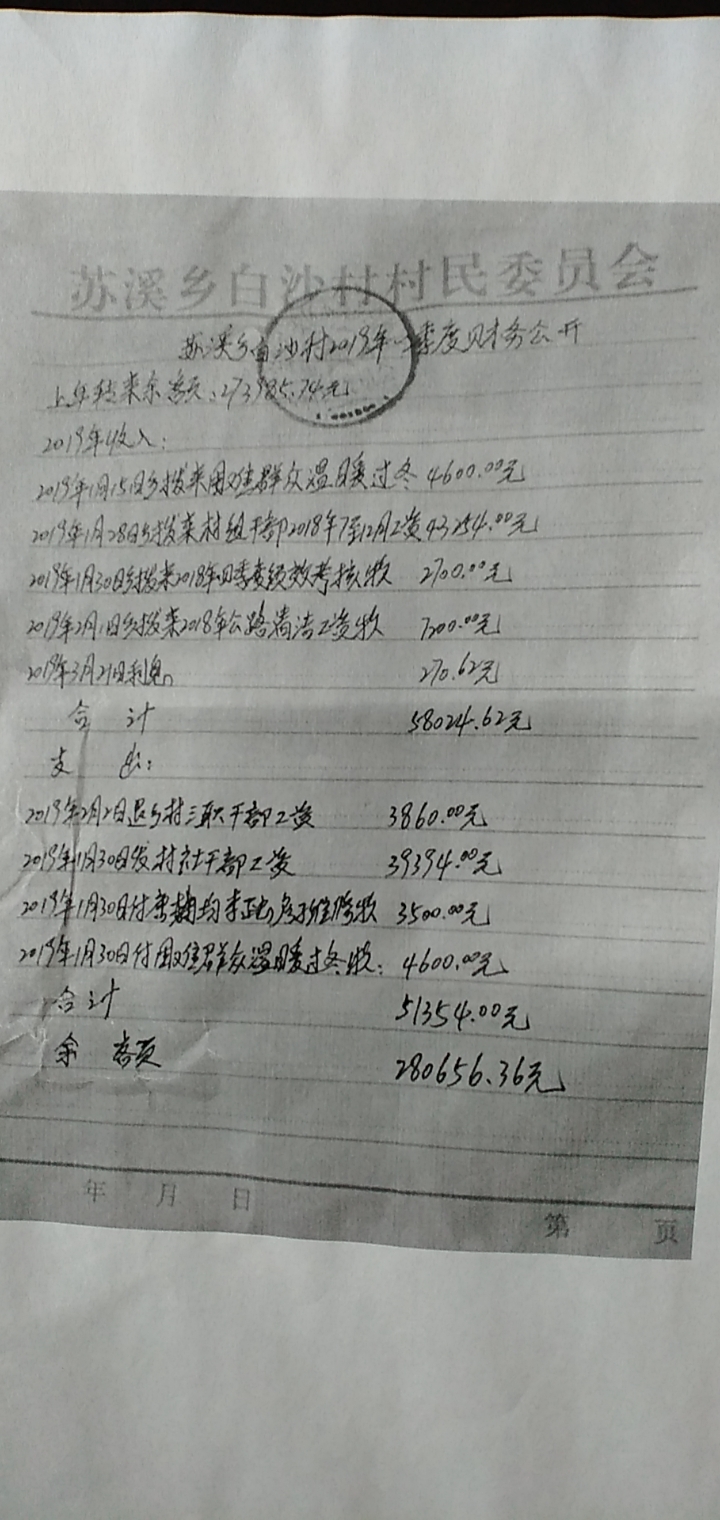 苏溪乡白沙村村民委员会
苏溪乡白沙村2019年一季度财务公开
上年转来余额:273985.74元
2019年收入:
2019年1月15日乡拨来困难群众温暖过冬 4600.00元
2019年1月28日乡拨来村组干部2018年7至12月工资43254.00元
2019年1月30日乡拨来2018年四季度绩效考核款 2700.00元
2019年2月1日乡拨来2018年公路清洁工资款 7200.00元
2019年3月21日利息。 270.62元
合 计 58024.62元
支 出:
2019年2月2日退乡村三职干部工资 3860.00元
2019年1月30日发村社干部工资 39394.00元
2019年1月30日付 均李 房子维修款 3500.00元
2019年1月30日付困难群众温暖过冬款: 4600.00元
合计 51354.00元
余 额 280656.36元
年 月 日
第 页